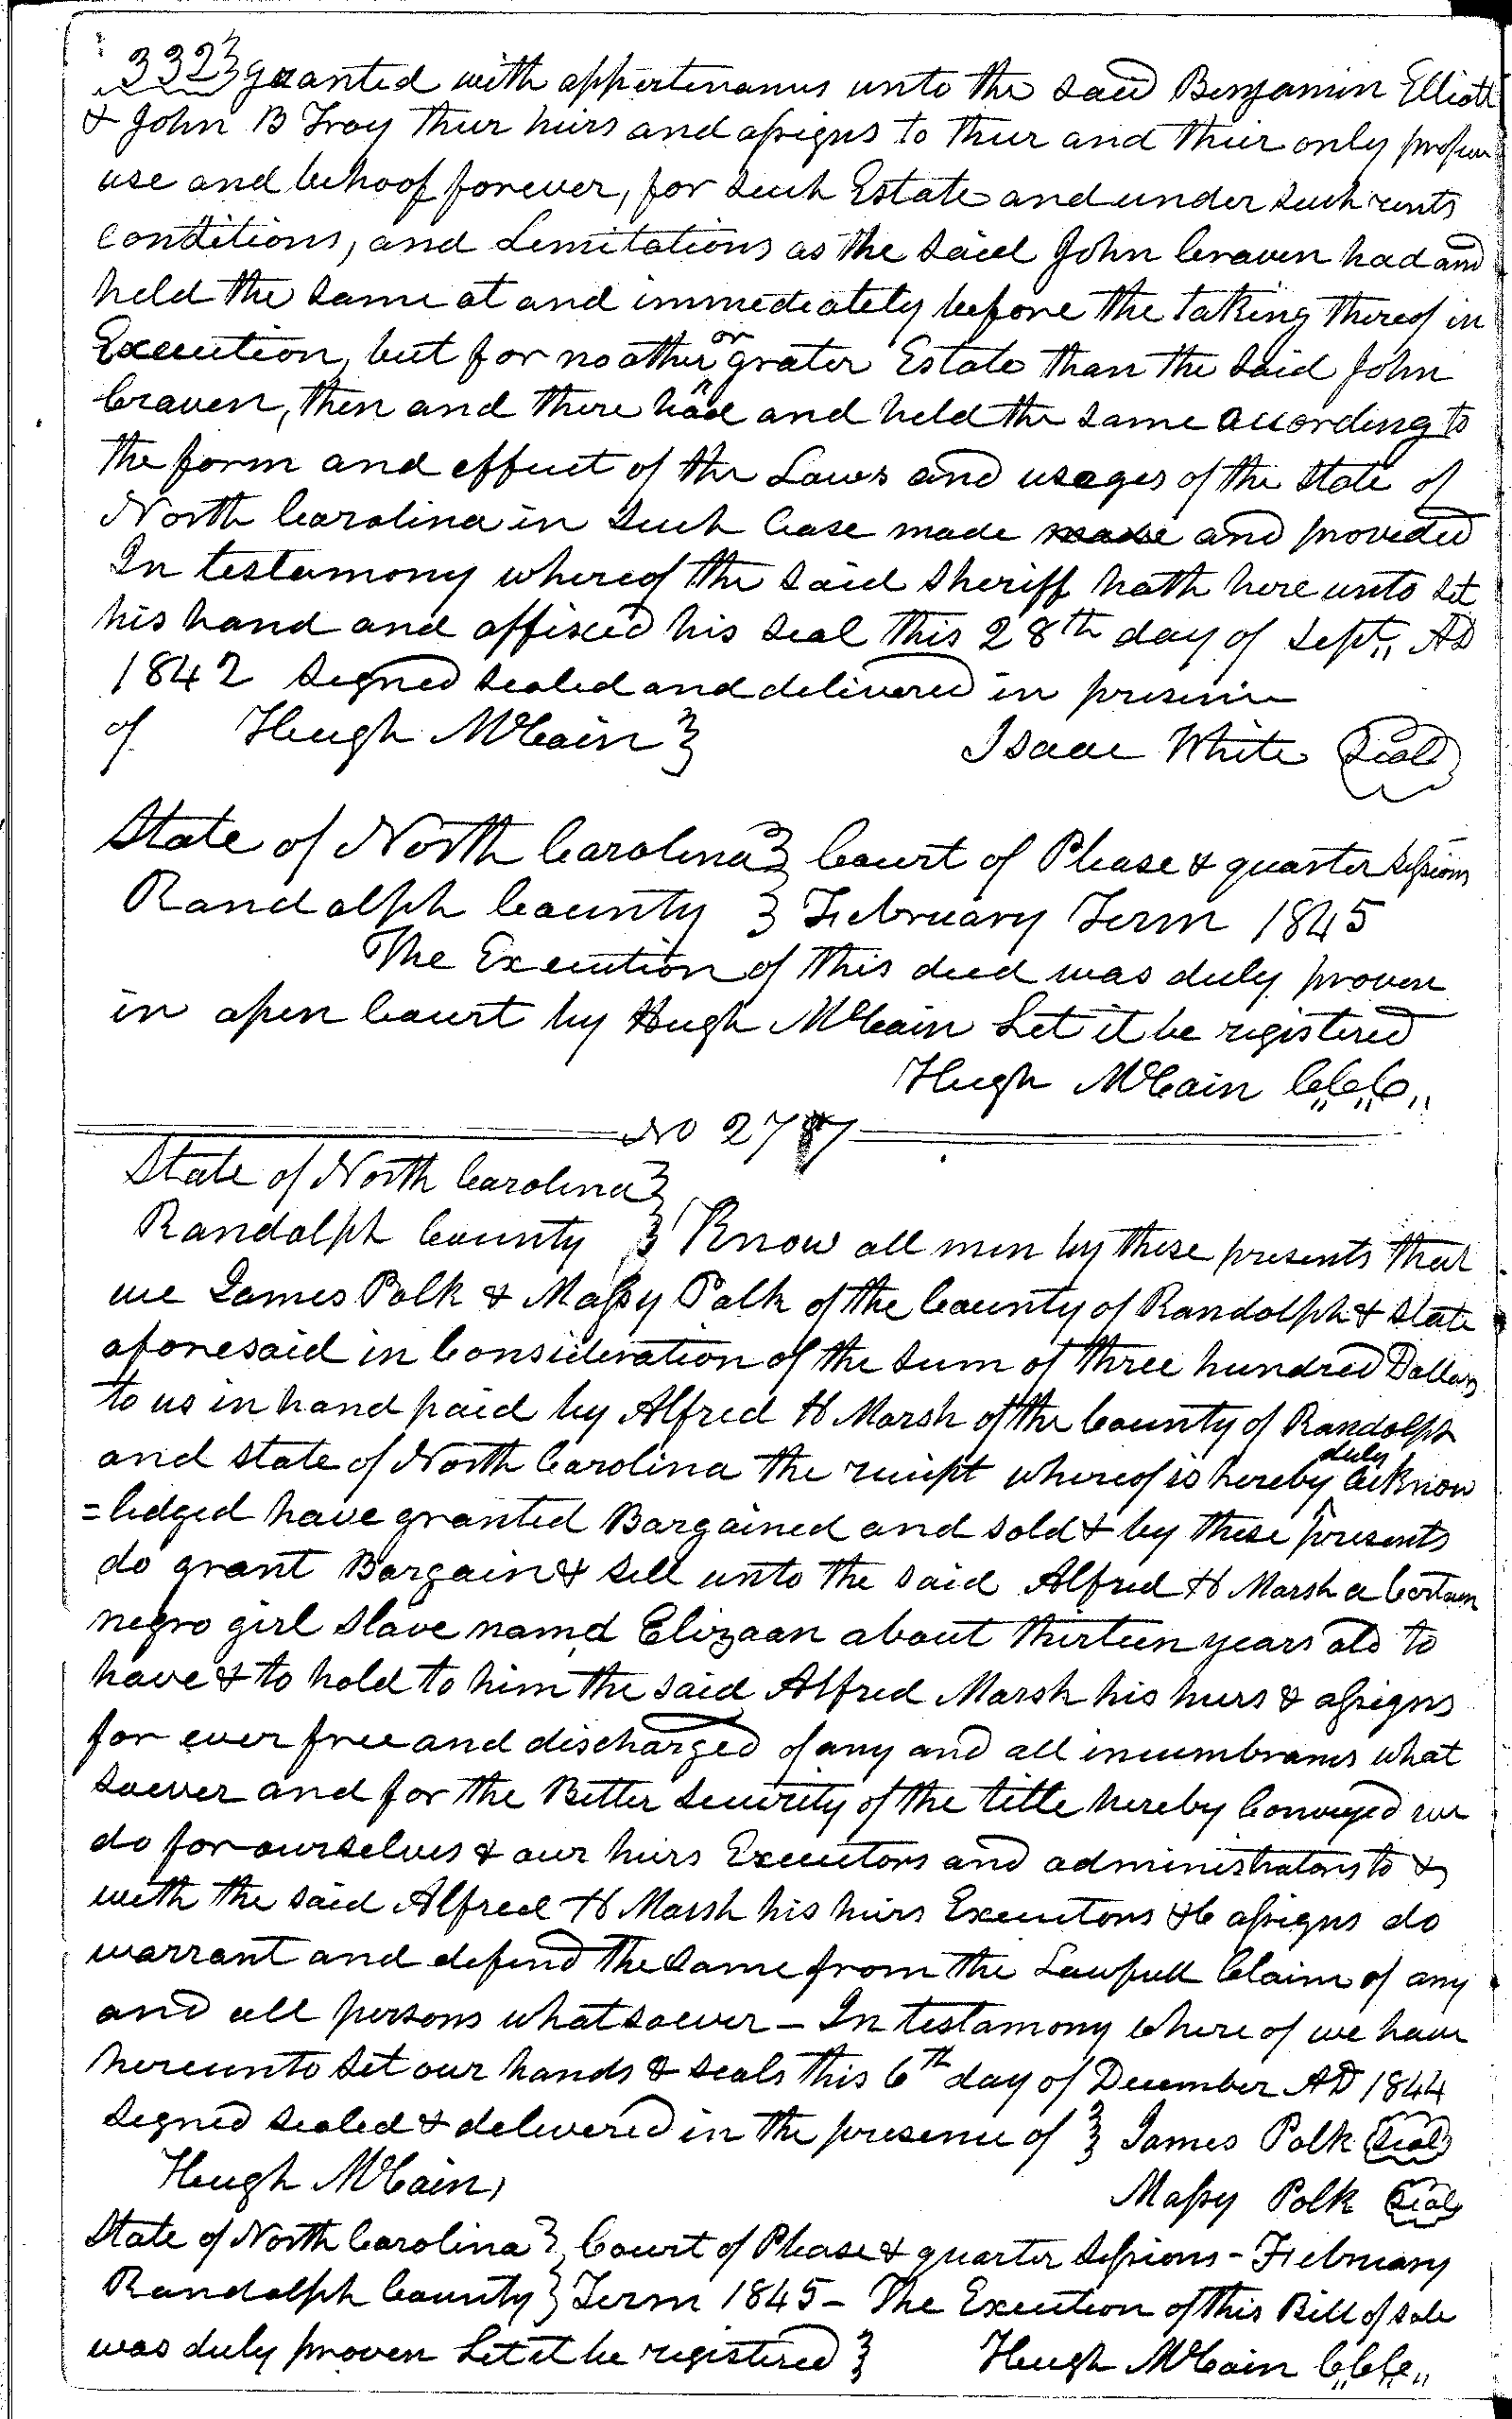 332} granted with appertenances unto the said Benjamin Elliott
& John B Troy their heirs and assigns to their and their only proper
use and behoof forever, for such Estate and under such rents
Conditions, and Limitations as the said John Craven had and
held the same at and immediately before the taking thereof in
Execution, but for no other or grater Estate than the said John
Craven, then and there had and held the same according to
the form and effect of the Laws and usages of the State of
North Carolina in such Case made made and provided
In testamony whereof the said Sheriff hath here unto set
his hand and affixed his seal this 28th day of Sept,, AD
1842 Signed sealed and delivered in presence
of Hugh McCain } Isaac White Seal
State of North Carolina } Court of Please & quarter Sessions
Randolph County } February Term 1845
The Execution of this deed was duly proven
in open Court by Hugh McCain Let it be registered
Hugh McCain C,,C,,C,,
No 2787
State of North Carolina }
Randolph County } Know all men by these presents that
we James Polk & Massy Polk of the County of Randolph & State
aforesaid in Consideration of the sum of three hundred Dollars
to us in hand paid by Alfred H Marsh of the County of Randolph
and State of North Carolina the receipt whereof is hereby duly acknow
=ledged have granted Bargained and sold & by these presents
do grant Bargain & sell unto the said Alfred H Marsh a Certain
negro girl slave namd Elizaan about thirteen years old to
have & to hold to him the said Alfred Marsh his heirs & assigns
for ever free and discharged of any and all incumbrances what
soever and for the Better security of the title hereby Conveyed we
do for ourselves & our heirs Executors and administrators to &
with the said Alfred H Marsh his heirs Executors &C assigns do
warrant and defend the same from the Lawfull Claim of any
and all persons whatsoever - In testamony where of we have
hereunto set our hands & seals this 6th day of December AD 1844
Signed sealed & delivered in the presence of } James Polk Seal
Hugh McCain, Massy Polk Seal
State of North Carolina } Court of Please & quarter Sessions - February
Randolph County } Term 1845 - The Execution of this Bill of sale
was duly proven Let it be registered } Hugh McCain C,,C,,C,,